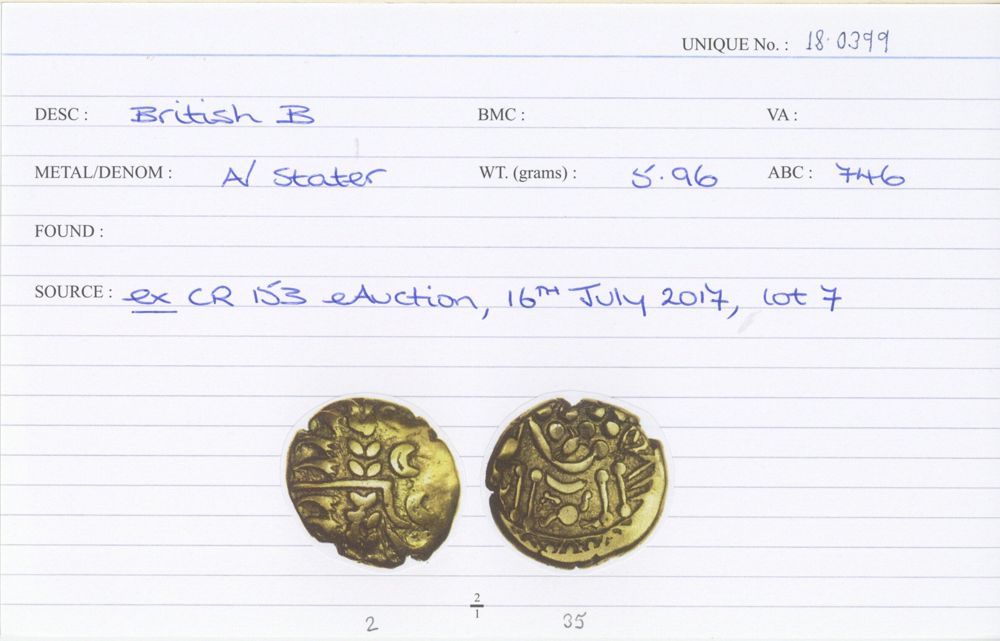 UNIQUE No. : 18.0399
DESC : British B BMC : VA :
METAL/DENOM : A/ Stater WT. (grams) : 5.96 ABC : 746
FOUND :
SOURCE : ex CR 153 eAuction, 16TH July 2017, lot 7
2
1
2 35